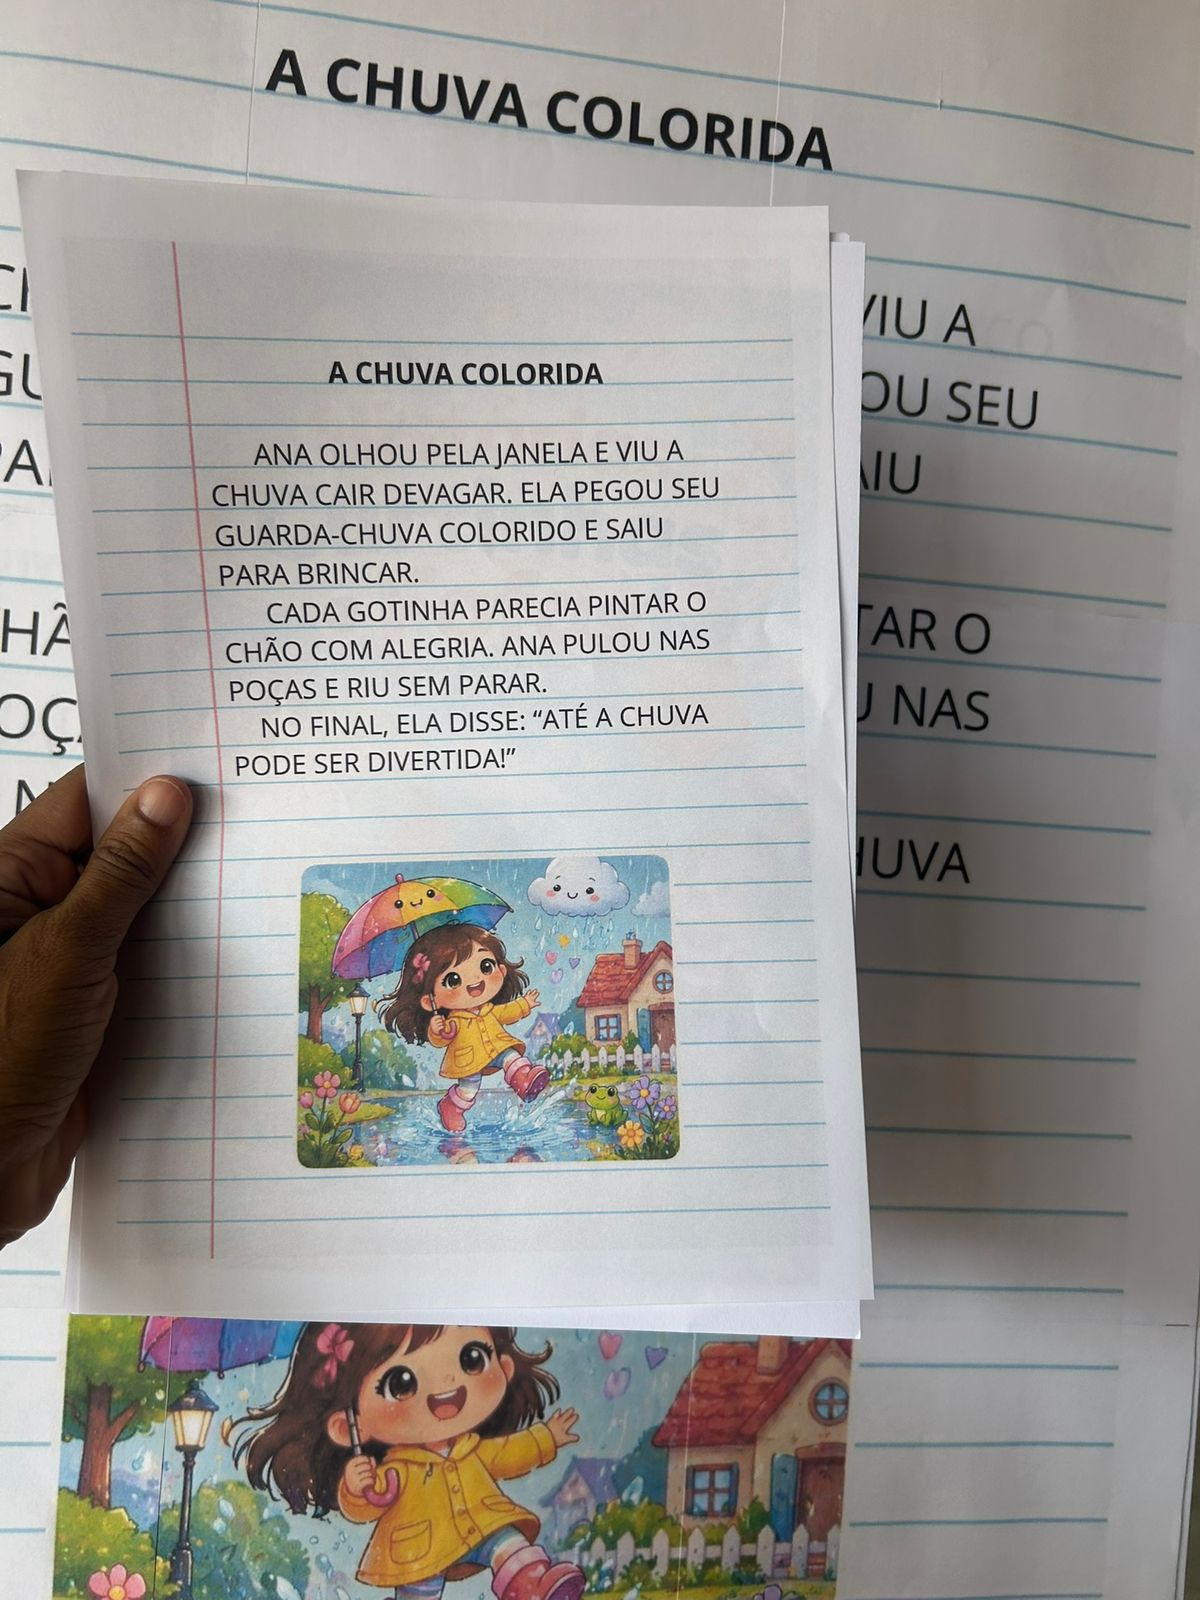 A CHUVA COLORIDA
VIU A
OU SEU
AIU
TAR O
U NAS
HUVA
A CHUVA COLORIDA
ANA OLHOU PELA JANELA E VIU A
CHUVA CAIR DEVAGAR. ELA PEGOU SEU
GUARDA-CHUVA COLORIDO E SAIU
PARA BRINCAR.
CADA GOTINHA PARECIA PINTAR O
CHÃO COM ALEGRIA. ANA PULOU NAS
POÇAS E RIU SEM PARAR.
NO FINAL, ELA DISSE: “ATÉ A CHUVA
PODE SER DIVERTIDA!”